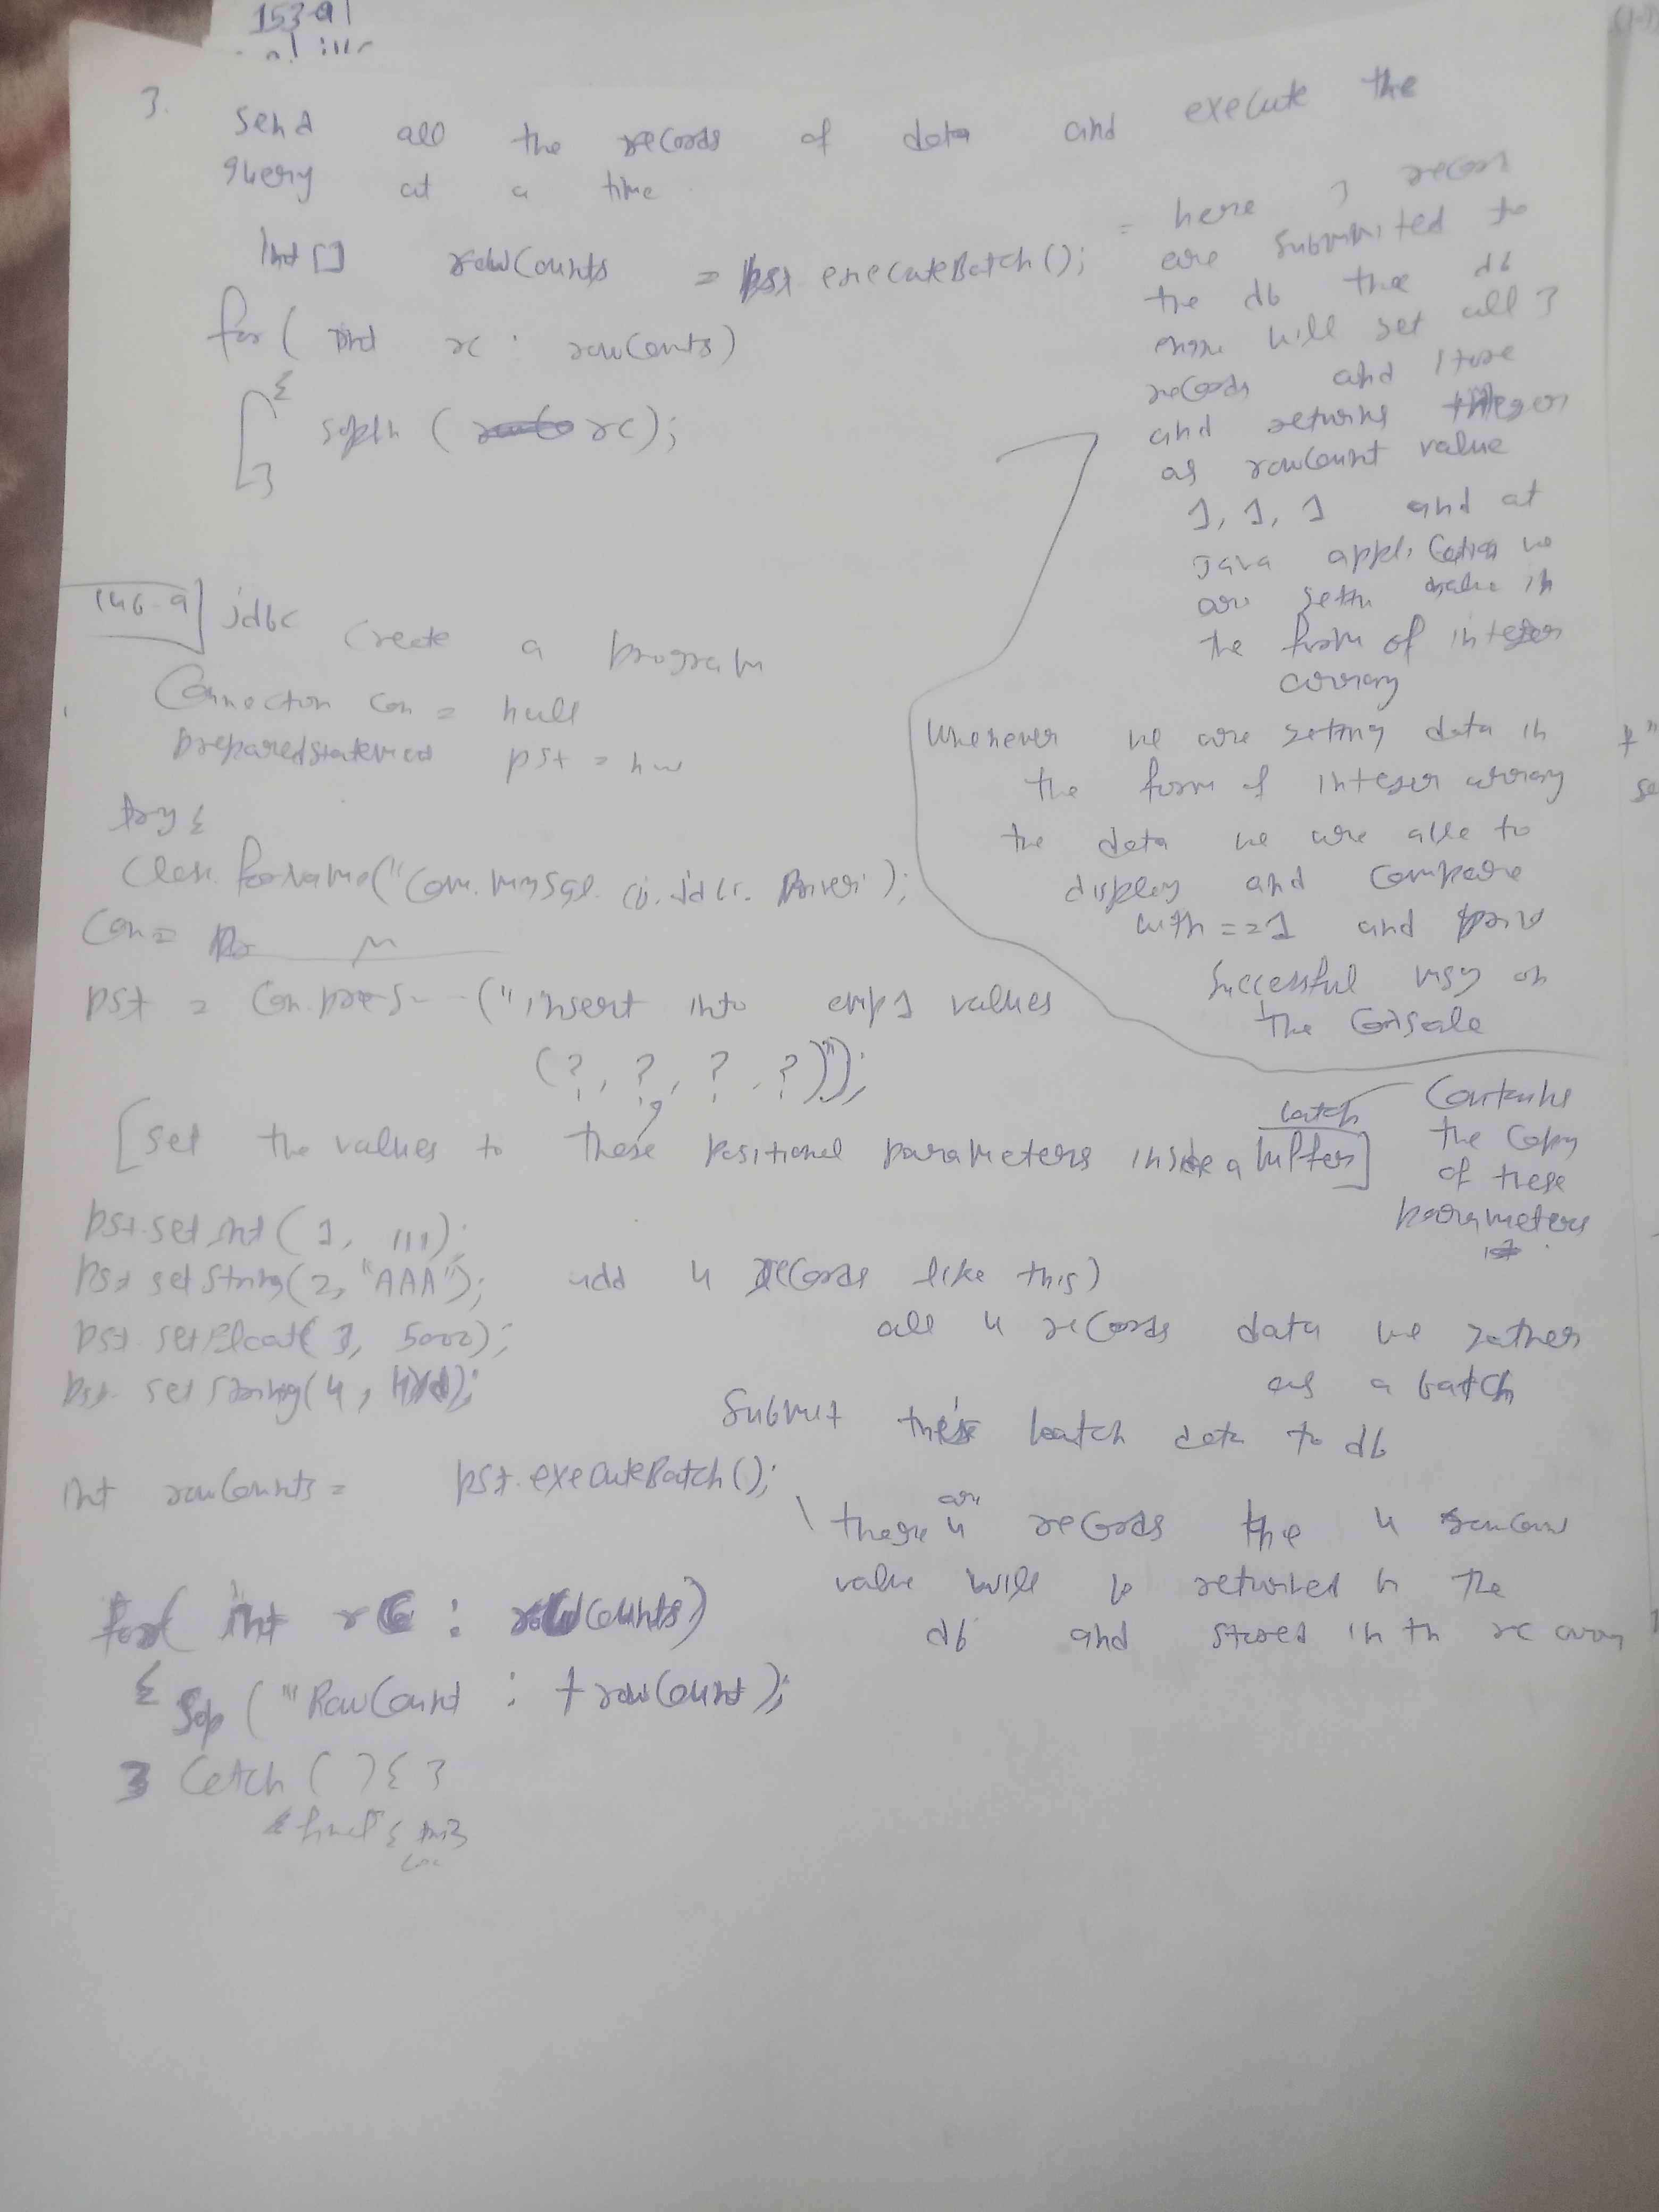 153-9
3.
Send all the records of data and execute the
query at a time
Int [] rowCounts = pst.executeBatch();
for ( int rc : rowCounts)
{
sopln ( rc);
}
= here 3 recor
are submitted to
the db the db
engine will get all 3
records and store
and returns integer
as rowCount value
1, 1, 1 and at
Java application we
are gettn value in
the form of integer
array
Whenever we are geting data in
the form of integer array
the data we are able to
display and compare
with ==1 and
successful msg on
the Console
146-9] jdbc Create a program
Connection con = null
PreparedStatement pst = nu
try {
Class.forName("com.mysql.cj.jdbc.Driver");
Con =
pst = Con.preS ("insert into emp1 values
(?, ?, ?, ?)");
[set the values to these positional parameters inside a batch buffer]
Contains
the copy
of these
parameters
pst.setInt(1, 111);
pst.setString(2, "AAA"); add 4 records like this)
pst.setFloat(3, 5000); all 4 records data we gather
pst.setString(4, Hyd); as a batch
Submit this batch data to db
int rowCounts = pst.executeBatch();
there are 4 records the 4 rowCoun
value will be returned by the
db and stored in th rc array
for( int rc : rowCounts)
{ Sop ("RowCount : + rowCount);
} Catch ( ) { }